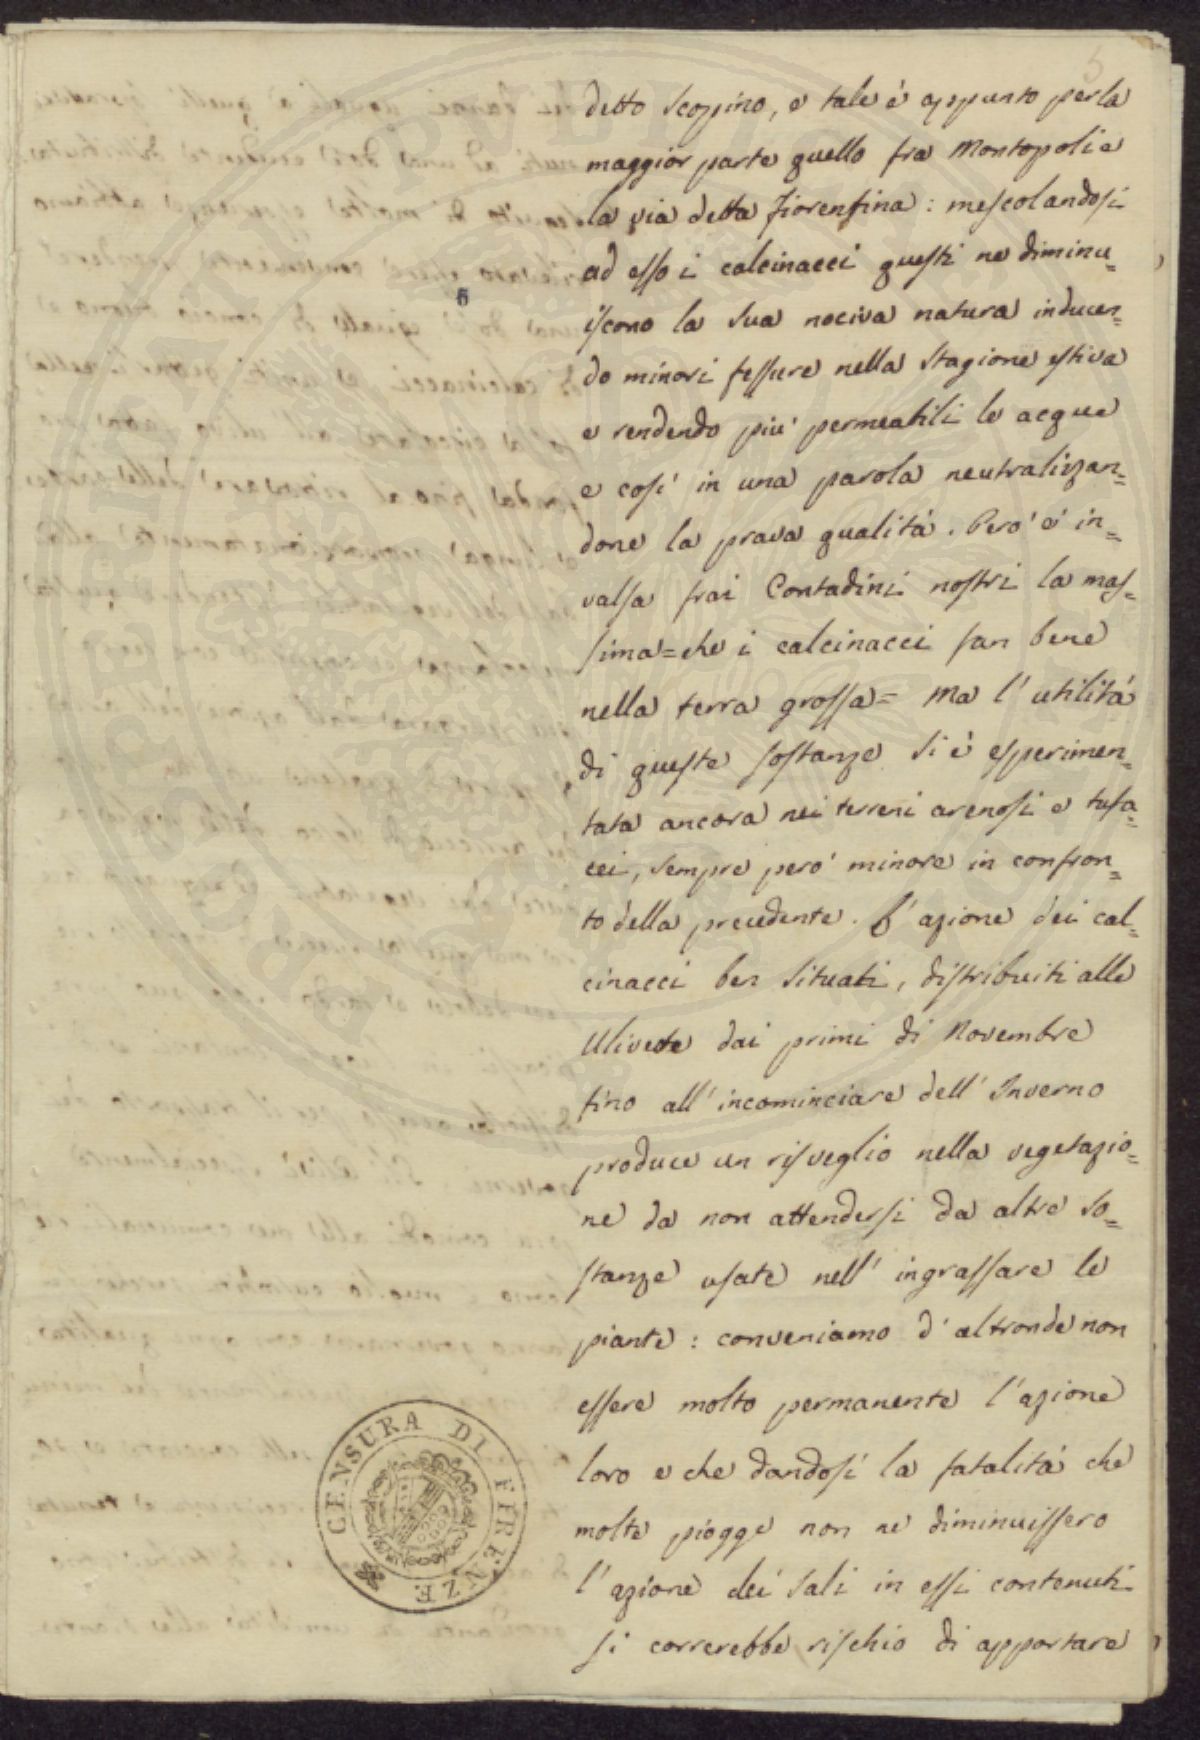 5
detto scopino, e tale è appunto per la
maggior parte quello fra Montopoli e
la via detta fiorentina : mescolandosi
ad esso i calcinacci questi ne diminu=
iscono la sua nociva natura inducen=
do minori fessure nella stagione estiva
e rendendo piu' permeabili le acque
e cosi' in una parola neutralizzan=
done la prava qualità. Però è in=
valsa frai Contadini nostri la mas=
sima=che i calcinacci fan bene
nella terra grossa= Ma l'utilità
di queste sostanze si è esperimen=
tata ancora nei terreni arenosi e tufa=
cei, sempre però minore in confron=
to della precedente. L'azione dei cal=
cinacci ben situati, distribuiti alle
Ulivete dai primi di Novembre
fino all'incominciare dell'Inverno
produce un risveglio nella vegetazio=
ne da non attendersi da altre so=
stanze usate nell'ingrassare le
piante : conveniamo d'altronde non
essere molto permanente l'azione
loro e che dandosi la fatalità che
molte piogge non ne diminuissero
l'azione dei sali in essi contenuti
si correrebbe rischio di apportare
5
CENSURA DI FIRENZE